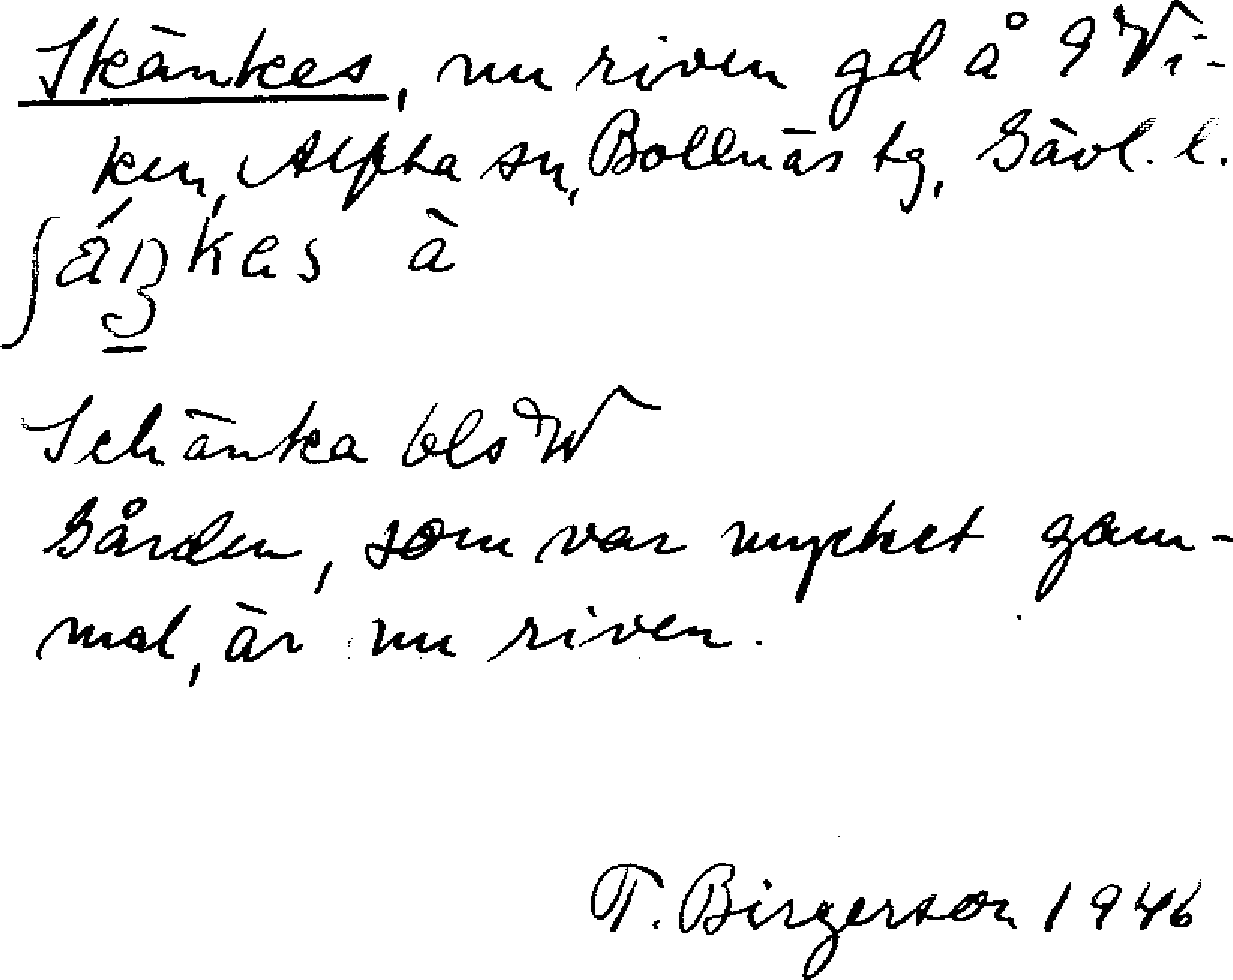 Skänkes, nu riven gd å 9 Vi-
ken, Alfta sn, Bollnäs tg, Gävl. l.
ʃäŋ̲kes à
Schänka bls W
Gården, som var mycket gam-
mal, är nu riven.
T. Birgerson 1946